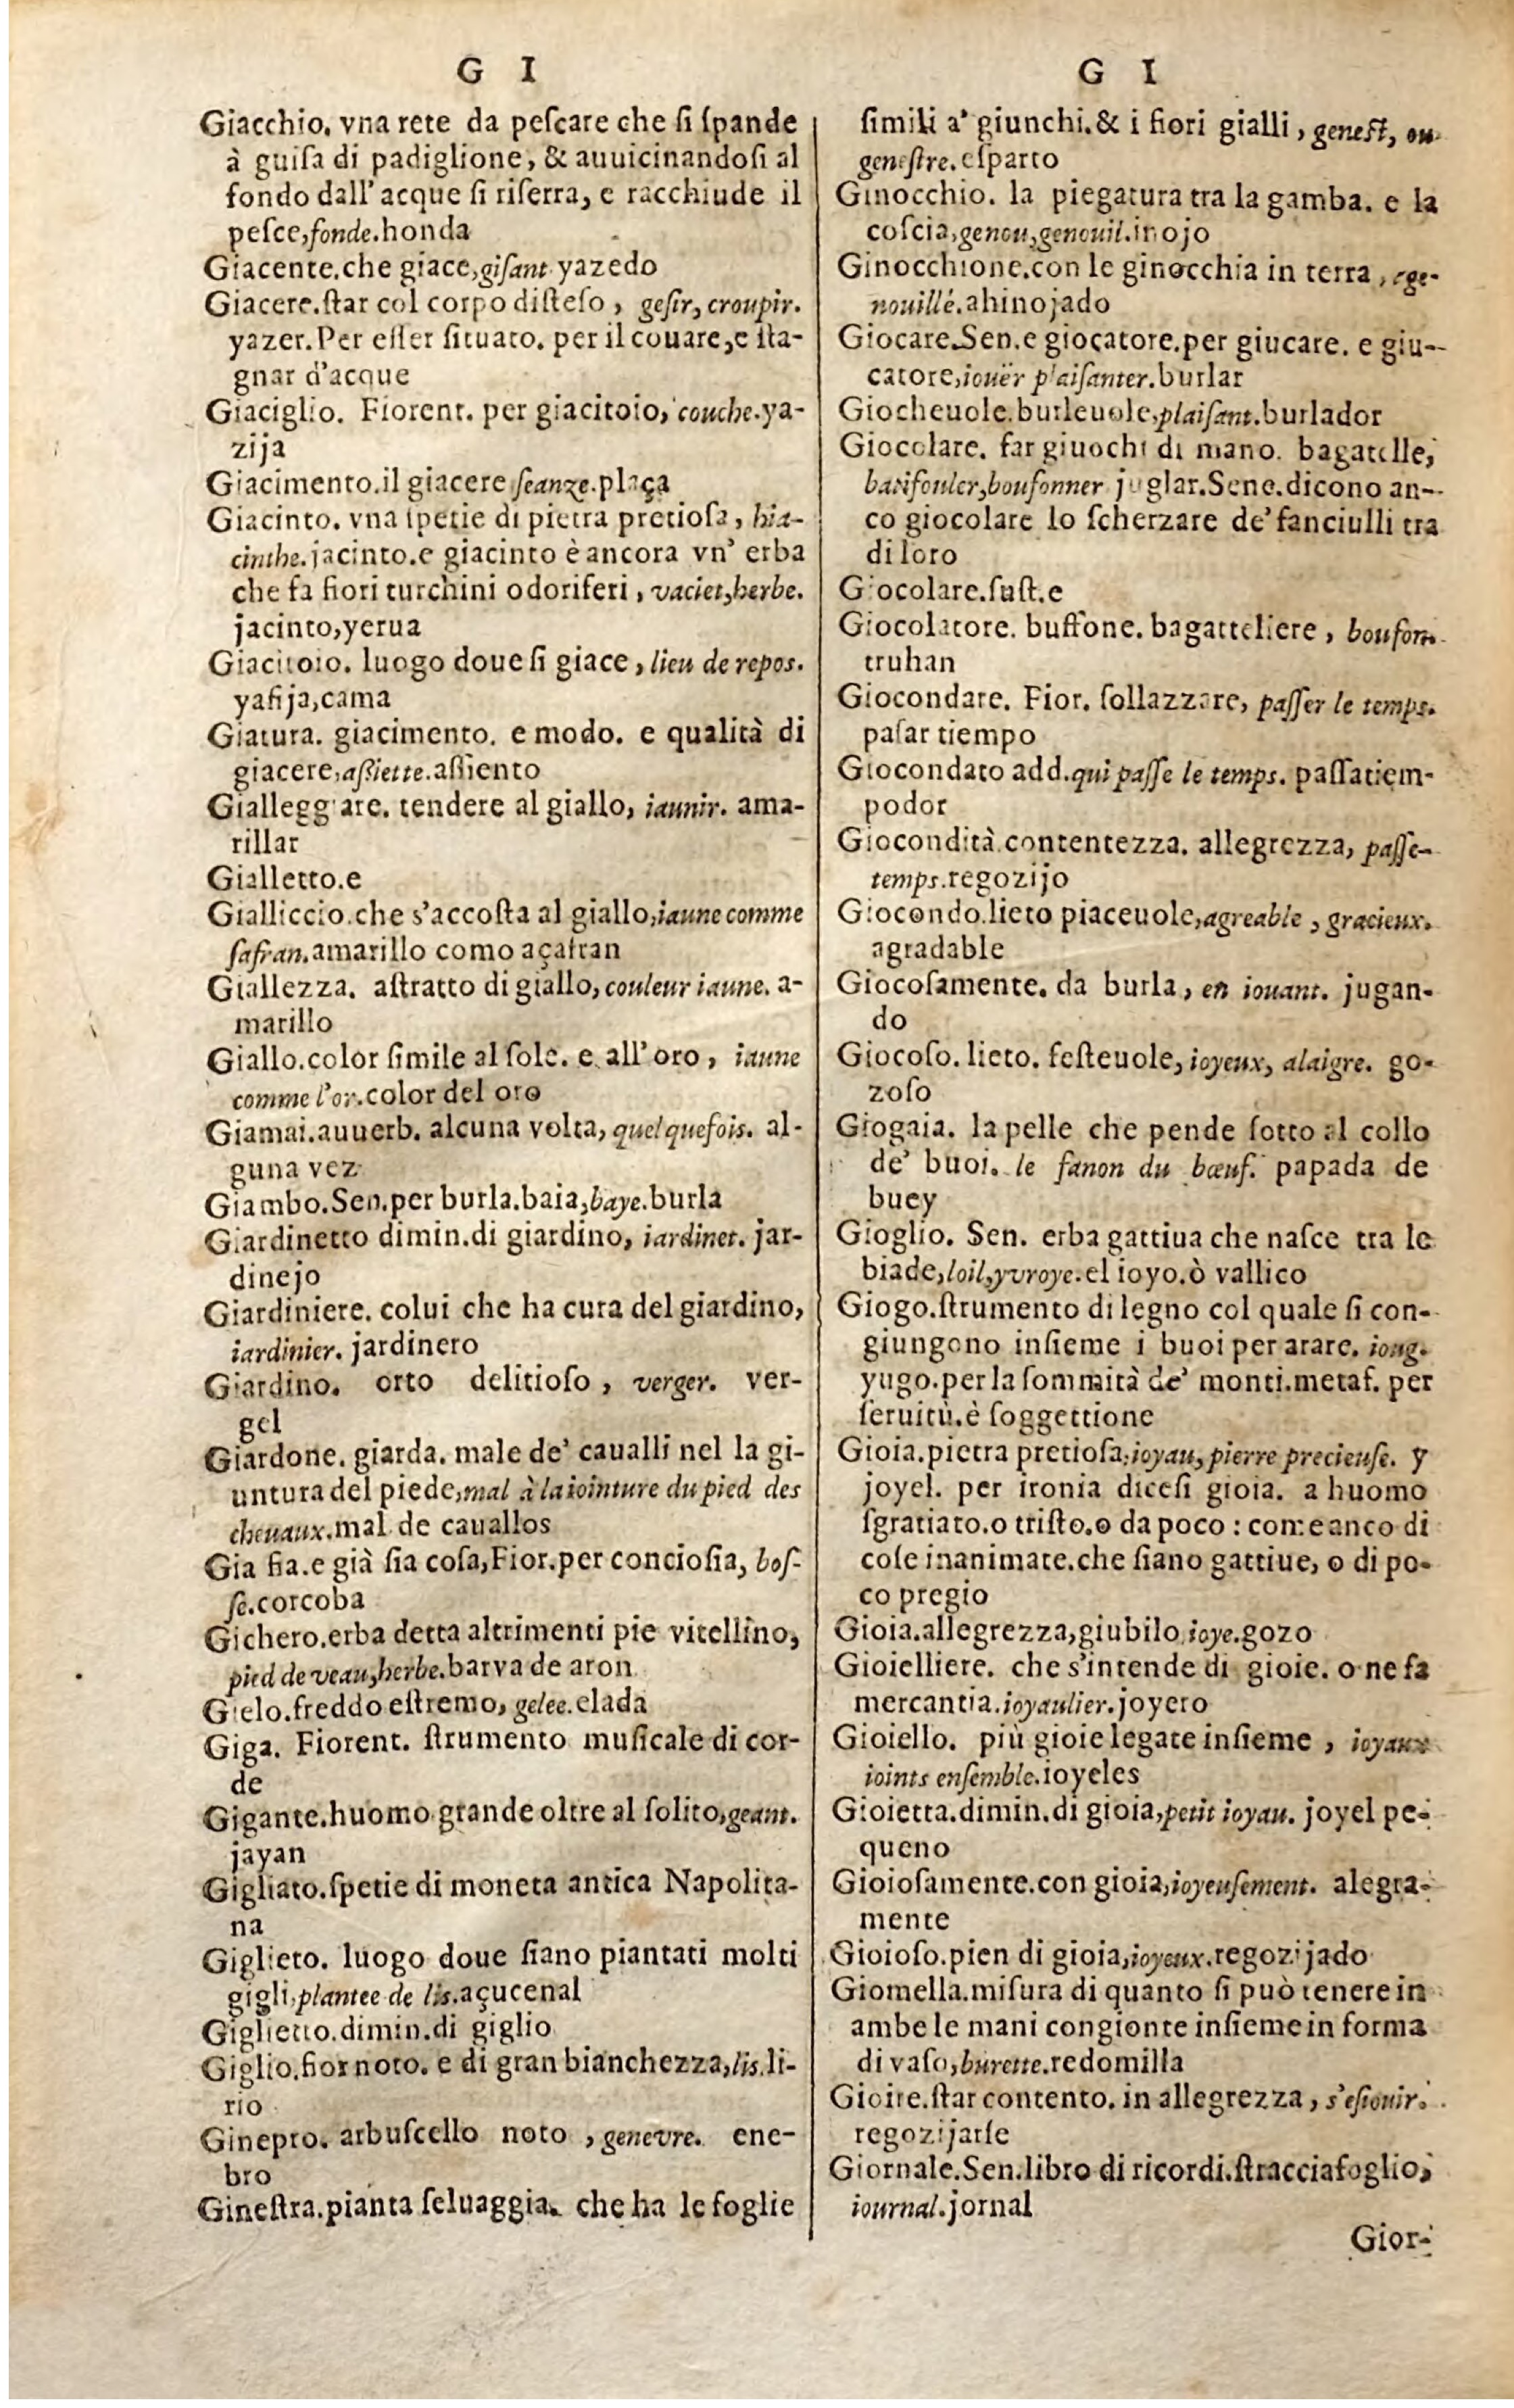 G I
Giacchio. vna rete da peſcare che ſi ſpande
à guiſa di padiglione, & auuicinandoſi al
fondo dall' acque ſi riſerra, e racchiude il
peſce, fonde. honda
Giacente. che giace, giſant yazedo
Giacere. ſtar col corpo diſteſo, geſir, croupir.
yazer. Per eſſer ſituato. per il couare, e ſta-
gnar d'acque
Giaciglio. Fiorent. per giacitoio, couche. ya-
zija
Giacimento. il giacere ſeanze. plaça
Giacinto. vna ſpetie di pietra pretioſa, hia-
cinthe. jacinto. e giacinto è ancora vn' erba
che fa fiori turchini odoriferi, vaciet, herbe.
jacinto, yerua
Giacitoio. luogo doue ſi giace, lieu de repos.
yaſija, cama
Giatura. giacimento. e modo. e qualità di
giacere, aſſiette. aſſiento
Gialleggiare. tendere al giallo, iaunir. ama-
rillar
Gialletto. e
Gialliccio. che s'accoſta al giallo, iaune comme
ſafran. amarillo como açafran
Giallezza. aſtratto di giallo, couleur iaune. a-
marillo
Giallo. color ſimile al ſole. e all' oro, iaune
comme l'or. color del oro
Giamai. auuerb. alcuna volta, quelquefois. al-
guna vez
Giambo. Sen. per burla. baia, baye. burla
Giardinetto dimin. di giardino, iardinet. jar-
dinejo
Giardiniere. colui che ha cura del giardino,
iardinier. jardinero
Giardino. orto delitioſo, verger. ver-
gel
Giardone. giarda. male de' caualli nel la gi-
untura del piede, mal à la iointure du pied des
cheuaux. mal de cauallos
Gia ſia. e già ſia coſa, Fior. per concioſia, boſ-
ſe. corcoba
Gichero. erba detta altrimenti pie vitellino,
pied de veau, herbe. barva de aron
Gielo. freddo eſtremo, gelee. elada
Giga. Fiorent. ſtrumento muſicale di cor-
de
Gigante. huomo grande oltre al ſolito, geant.
jayan
Gigliato. ſpetie di moneta antica Napolita-
na
Giglieto. luogo doue ſiano piantati molti
gigli, plantee de lis. açucenal
Giglietto. dimin. di giglio
Giglio. fior noto. e di gran bianchezza, lis. li-
rio
Ginepro. arbuſcello noto, genevre. ene-
bro
Gineſtra. pianta ſeluaggia. che ha le foglie
G I
ſimili a' giunchi. & i fiori gialli, geneſt, ou
geneſtre. eſparto
Ginocchio. la piegatura tra la gamba. e la
coſcia, genou, genouil. inojo
Ginocchione. con le ginocchia in terra, ege-
nouillé. ahinojado
Giocare. Sen. e giocatore. per giucare. e giu-
catore, iouër plaiſanter. burlar
Giocheuole. burleuole, plaiſant. burlador
Giocolare. far giuochi di mano. bagatelle,
batifouler, boufonner juglar. Sene. dicono an-
co giocolare lo ſcherzare de' fanciulli tra
di loro
Giocolare. ſuſt. e
Giocolatore. buffone. bagattelliere, boufon.
truhan
Giocondare. Fior. ſollazzare, paſſer le temps.
paſar tiempo
Giocondato add. qui paſſe le temps. paſſatiem-
podor
Giocondità. contentezza. allegrezza, paſſe-
temps. regozijo
Giocondo. lieto piaceuole, agreable, gracieux.
agradable
Giocoſamente. da burla, en iouant. jugan-
do
Giocoſo. lieto. feſteuole, ioyeux, alaigre. go-
zoſo
Giogaia. la pelle che pende ſotto al collo
de' buoi. le fanon du bœuf. papada de
buey
Gioglio. Sen. erba gattiua che naſce tra le
biade, loil, yvroye. el ioyo. ò vallico
Giogo. ſtrumento di legno col quale ſi con-
giungono inſieme i buoi per arare. ioug.
yugo. per la ſommità de' monti. metaf. per
ſeruitù. è ſoggettione
Gioia. pietra pretioſa, ioyau, pierre precieuſe. y
joyel. per ironia diceſi gioia. a huomo
ſgratiato. o triſto. o da poco : come anco di
coſe inanimate. che ſiano gattiue, o di po-
co pregio
Gioia. allegrezza, giubilo, ioye. gozo
Gioielliere. che s'intende di gioie. o ne fa
mercantia. ioyaulier. joyero
Gioiello. più gioie legate inſieme, ioyaux
ioints enſemble. ioyeles
Gioietta. dimin. di gioia, petit ioyau. joyel pe-
queno
Gioioſamente. con gioia, ioyeuſement. alegra-
mente
Gioioſo. pien di gioia, ioyeux. regozijado
Giomella. miſura di quanto ſi può tenere in
ambe le mani congionte inſieme in forma
di vaſo, burette. redomilla
Gioire. ſtar contento. in allegrezza, s'eſiouir.
regozijarſe
Giornale. Sen. libro di ricordi. ſtracciafoglio,
iournal. jornal
Gior-